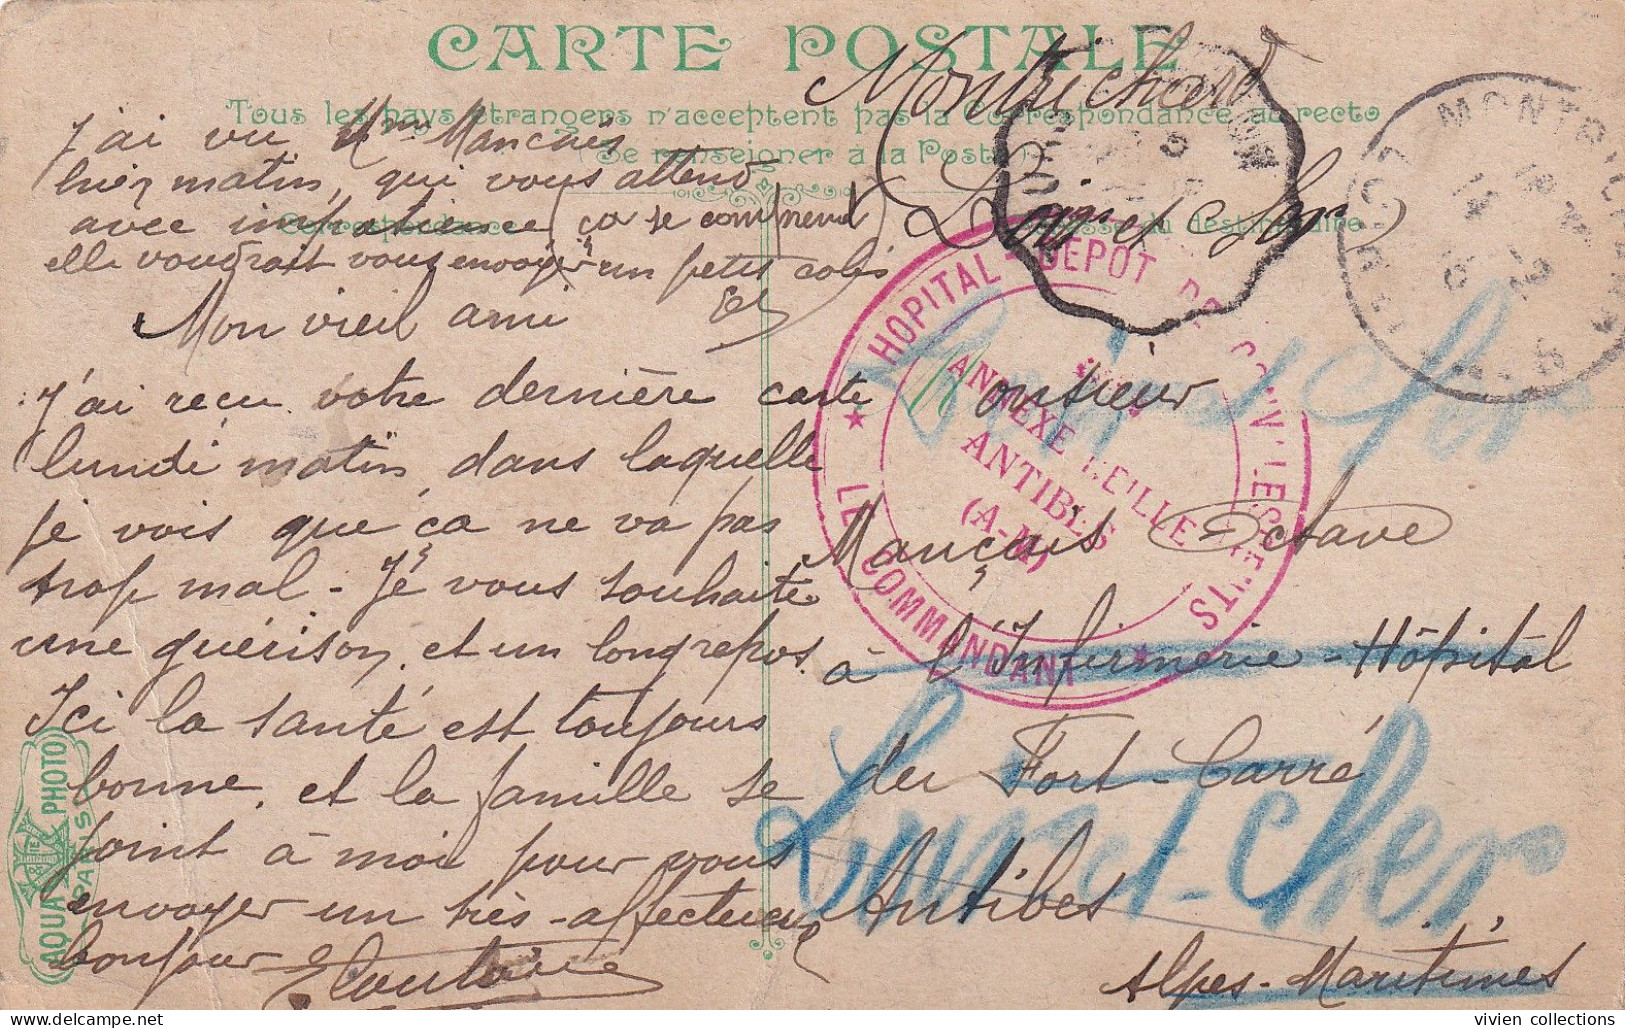 CARTE POSTALE
Tous les pays étrangers n'acceptent pas la Correspondance au recto
(Se renseigner à la Poste)
Correspondance
Adresse du destinataire
J'ai vu Mme Mançais
hier matin, qui vous attend
avec impatience (ça se comprend)
elle voudrait vous envoyer un petit colis
Mon vieil ami
J'ai reçu votre dernière carte
lundi matin, dans laquelle
je vois que ça ne va pas
trop mal - Je vous souhaite
une guérison, et un long repos.
Ici la santé est toujours
bonne, et la famille se
joint à moi pour vous
envoyer un très-affectueux
bonjour
Montrichard
(Loir et Cher)
Monsieur
Mançais Octave
à l'Infirmerie-Hôpital
du Fort-Carré
Antibes
Alpes-Maritimes
Loir et Cher
HOPITAL-DEPOT DE CONVALESCENTS
LE COMMANDANT
ANNEXE
ANTIBES
(A-M)
MONTRICHARD
AQUA PHOTO
PARIS
vivien collections